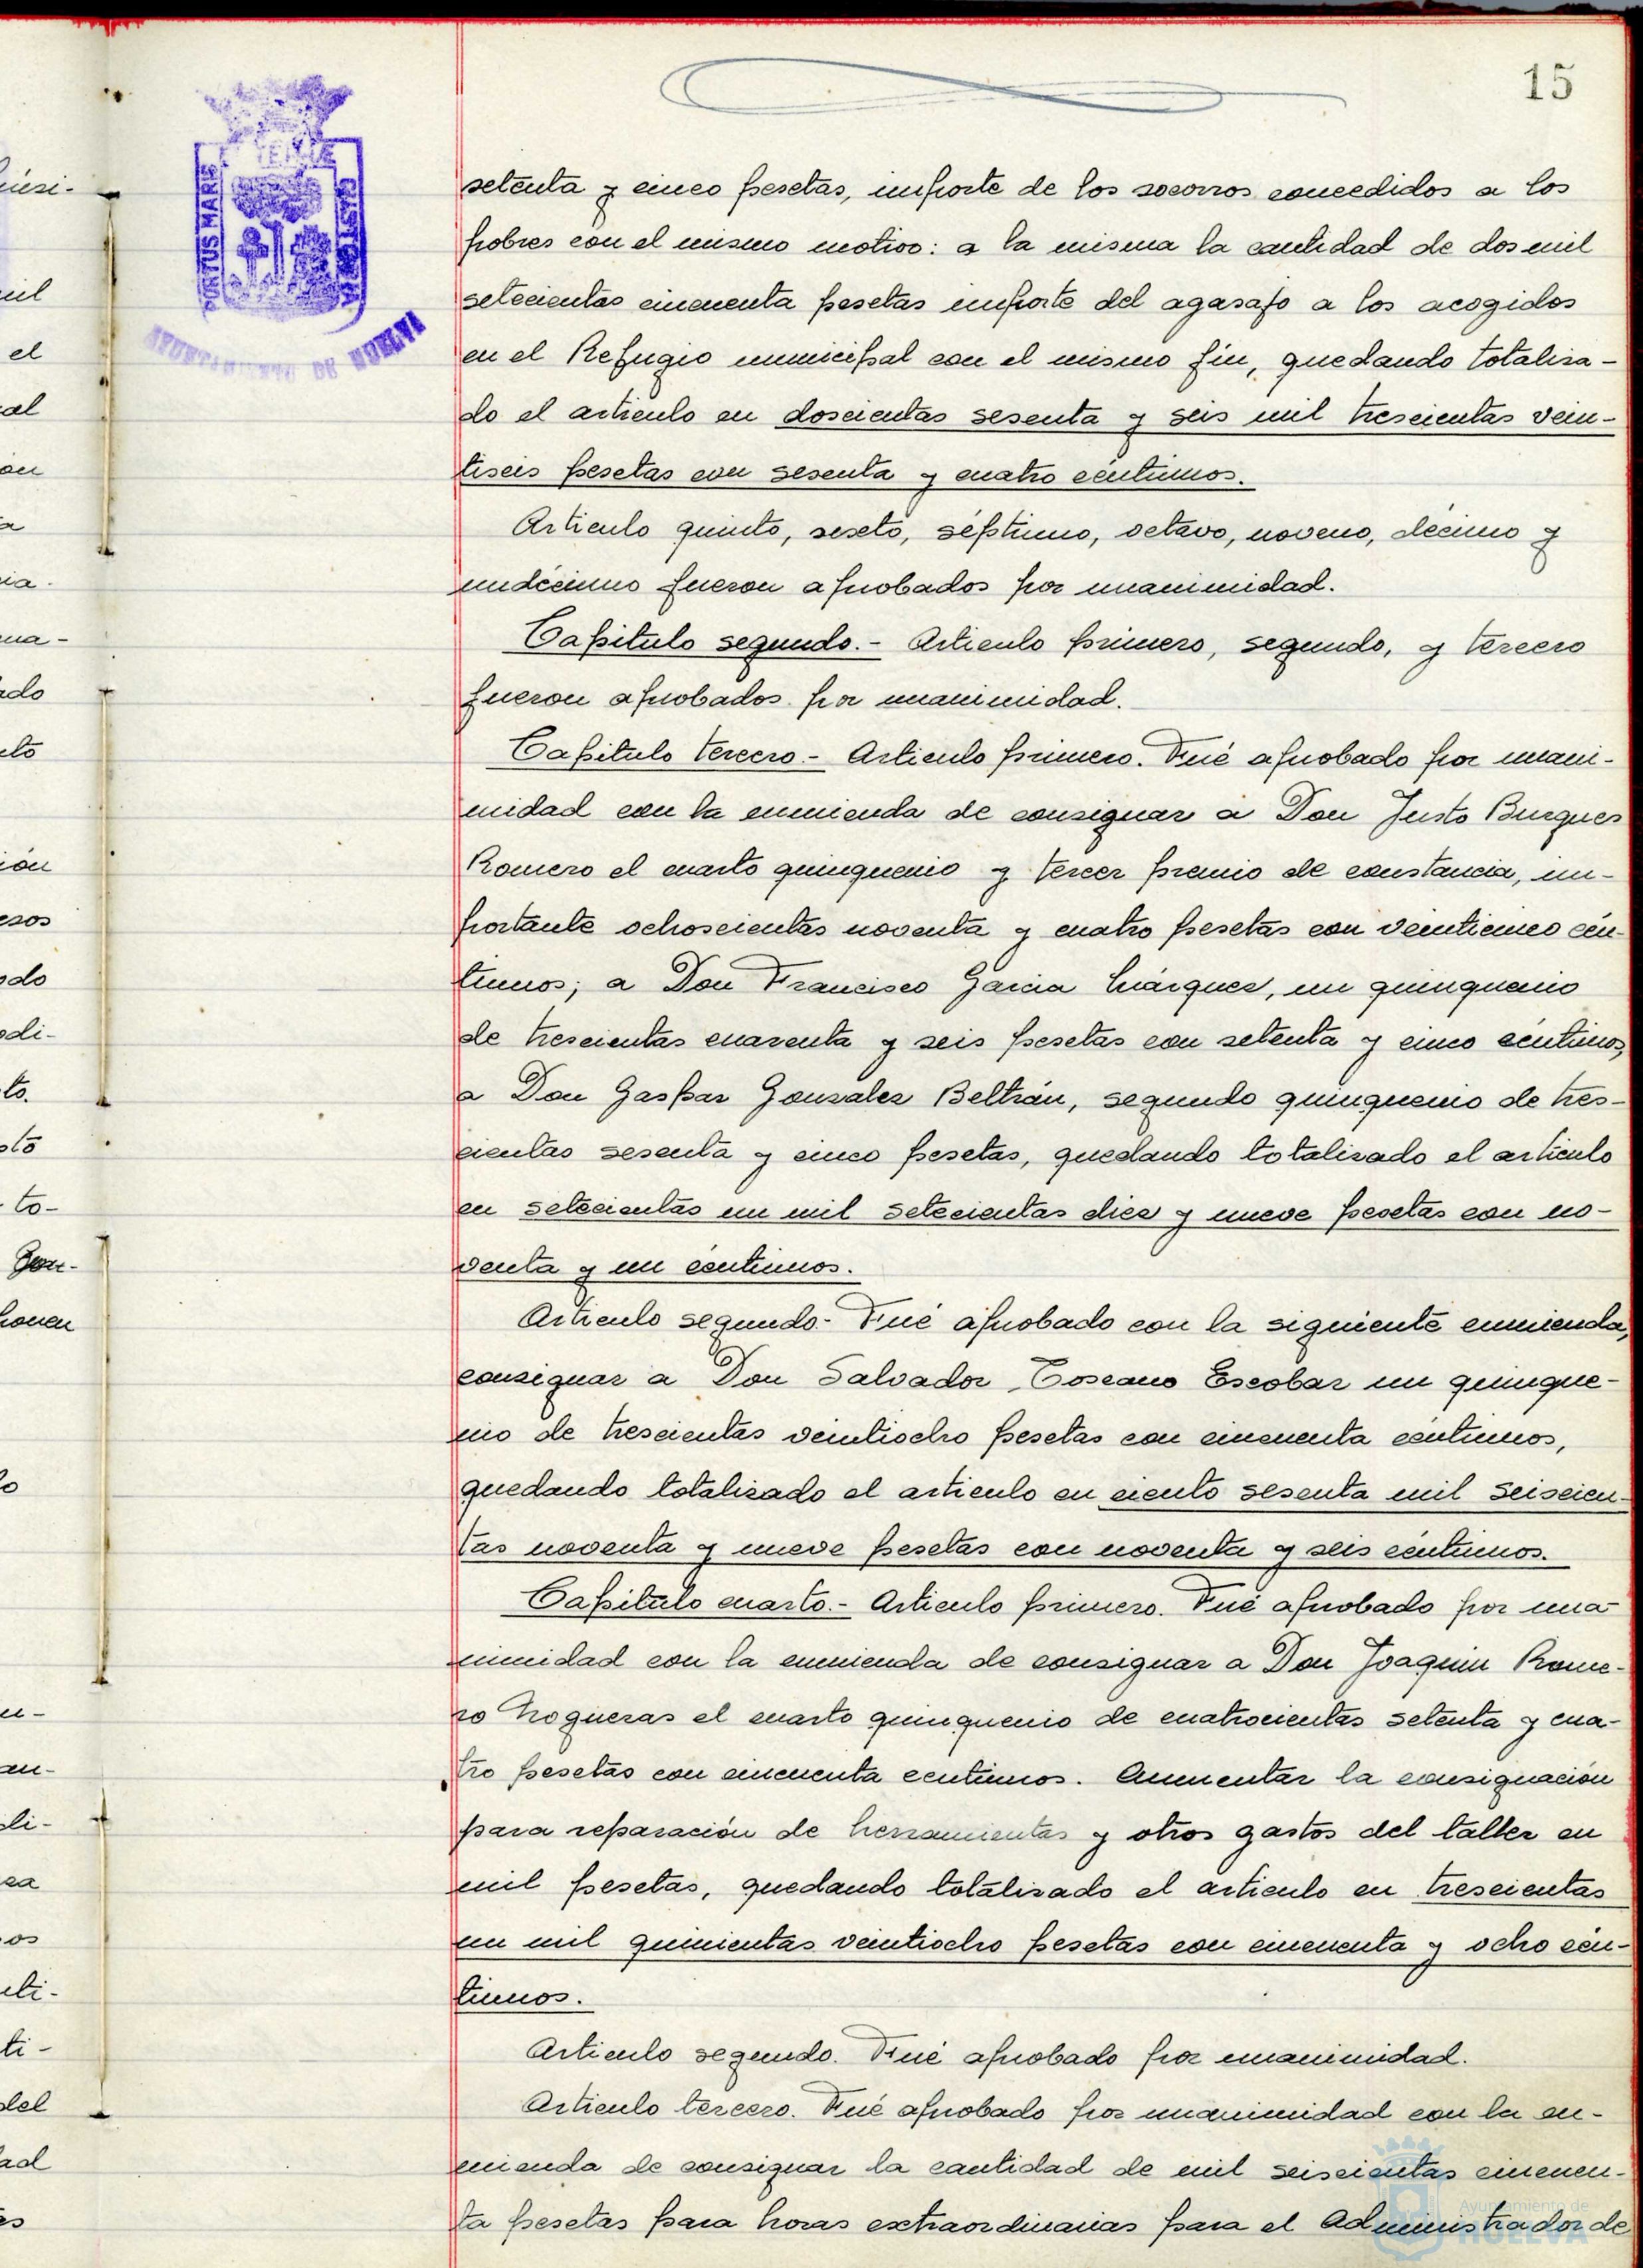 15
PORTUS MARIS
AYUNTAMIENTO DE HUELVA
setenta y cinco pesetas, importe de los socorros concedidos a los
pobres con el mismo motivo: a la misma la cantidad de dos mil
setecientas cincuenta pesetas importe del agasajo a los acogidos
en el Refugio municipal con el mismo fin, quedando totaliza-
do el articulo en doscientas sesenta y seis mil trescientas vein-
tiseis pesetas con sesenta y cuatro céntimos.
Articulo quinto, sexto, séptimo, octavo, noveno, décimo y
undécimo fueron aprobados por unanimidad.
Capitulo segundo.- Articulo primero, segundo, y tercero
fueron aprobados por unanimidad.
Capitulo tercero.- Articulo primero. Fué aprobado por unani-
midad con la enmienda de consignar a Don Justo Burgues
Romero el cuarto quinquenio y tercer premio de constancia, im-
portante ochoscientas noventa y cuatro pesetas con veinticinco cén-
timos; a Don Francisco Garcia Márquez, un quinquenio
de trescientas cuarenta y seis pesetas con setenta y cinco céntimos,
a Don Gaspar Gonzalez Beltrán, segundo quinquenio de tres-
cientas sesenta y cinco pesetas, quedando totalizado el articulo
en setecientas un mil setecientas diez y nueve pesetas con no-
venta y un céntimos.
Articulo segundo.- Fué aprobado con la siguiente enmienda,
consignar a Don Salvador Toscano Escobar un quinque-
nio de trescientas veintiocho pesetas con cincuenta céntimos,
quedando totalizado el articulo en ciento sesenta mil seiscien-
tas noventa y nueve pesetas con noventa y seis céntimos.
Capitulo cuarto.- Articulo primero. Fué aprobado por una-
nimidad con la enmienda de consignar a Don Joaquin Rome-
ro Nogueras el cuarto quinquenio de cuatrocientas setenta y cua-
tro pesetas con cincuenta centimos. Aumentar la consignación
para reparación de herramientas y otros gastos del taller en
mil pesetas, quedando totalizado el articulo en trescientas
un mil quinientas veintiocho pesetas con cincuenta y ocho cén-
timos.
Articulo segundo. Fué aprobado por unanimidad.
Articulo tercero. Fué aprobado por unanimidad con la en-
mienda de consignar la cantidad de mil seiscientas cincuen-
ta pesetas para horas extraordinarias para el Administrador de
Ayuntamiento de
HUELVA